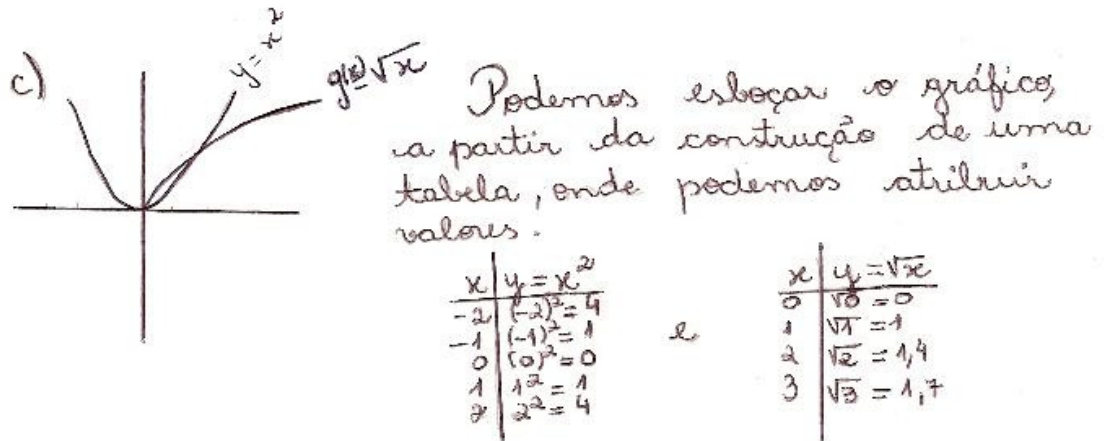 c)
y=x²
g(x)=√x
Podemos esboçar o gráfico,
a partir da construção de uma
tabela, onde podemos atribuir
valores.
x | y=x²
-2 | (-2)²=4
-1 | (-1)²=1
0 | (0)²=0
1 | 1²=1
2 | 2²=4
e
x | y=√x
0 | √0=0
1 | √1=1
2 | √2=1,4
3 | √3=1,7